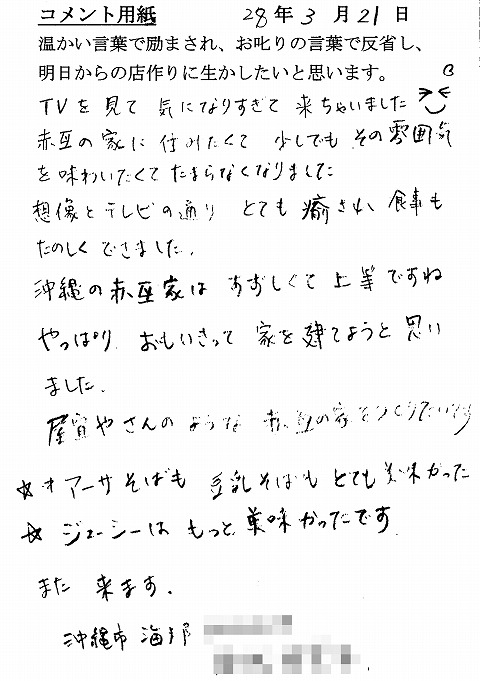 コメント用紙 28年3月21日
温かい言葉で励まされ、お叱りの言葉で反省し、
明日からの店作りに生かしたいと思います。
TVを見て 気になりすぎて 来ちゃいました
赤瓦の家に 住みたくて 少しでも その雰囲気
を味わいたくて たまらなくなりました
想像とテレビの通り とても 癒され、食事も
たのしく できました。
沖縄の赤瓦家は すずしくて 上等ですね
やっぱり、おもいきって 家を建てようと思い
ました。
屋宜やさんの ような 赤瓦の家をつくりたいです
☆ アーサそばも 豆乳そばも とても美味かった
☆ ジューシーは もっと、美味かったです
また 来ます。
沖縄市 海邦